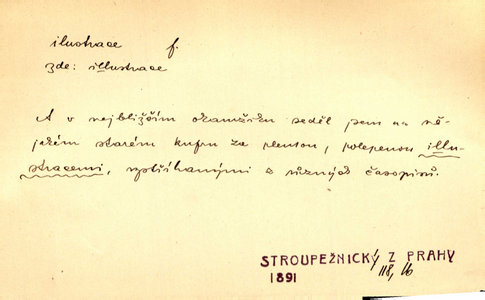 ilustrace f.
zde: illustrace
A v nejbližším okamžiku seděl jsem na ně-
jakém starém kufru za plentou, polepenou illu-
stracemi, vystříhanými z různých časopisů.
STROUPEŽNICKÝ Z PRAHY
1891 118, 16